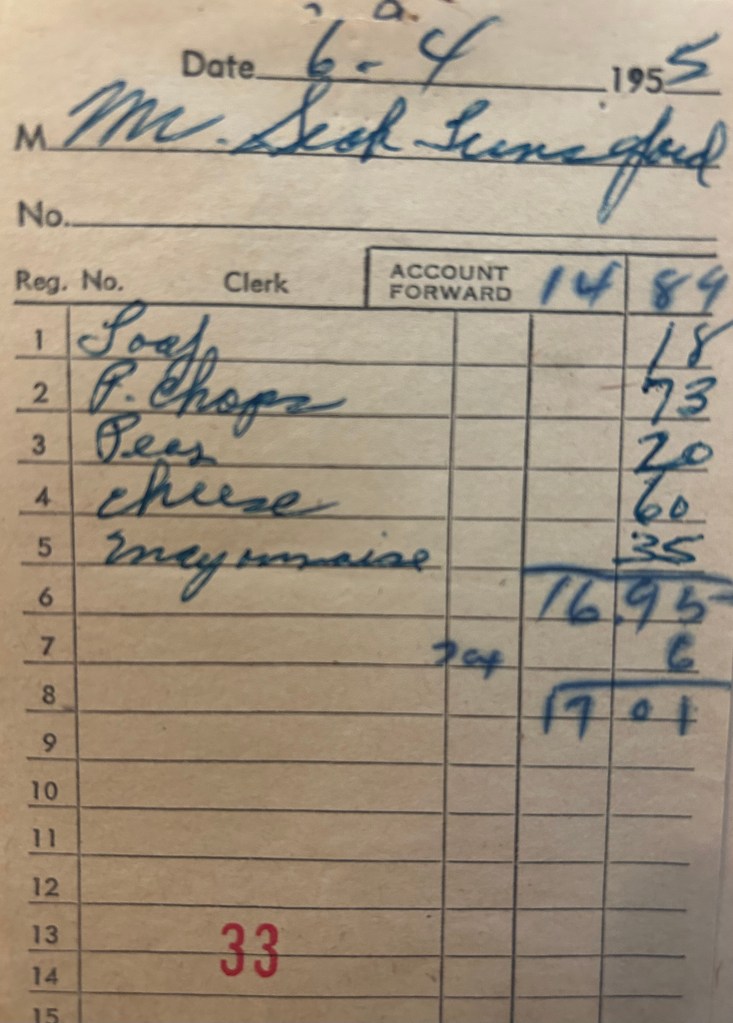 Date 6-4 1955
M Mr. Lunsford
No.
Reg. No. Clerk ACCOUNT FORWARD 14 89
1 Loaf 18
2 P. Chops 73
3 Peas 20
4 cheese 60
5 mayonnaise 35
6 16.95
7 Tax 6
8 17 01
9
10
11
12
13
33
14
15